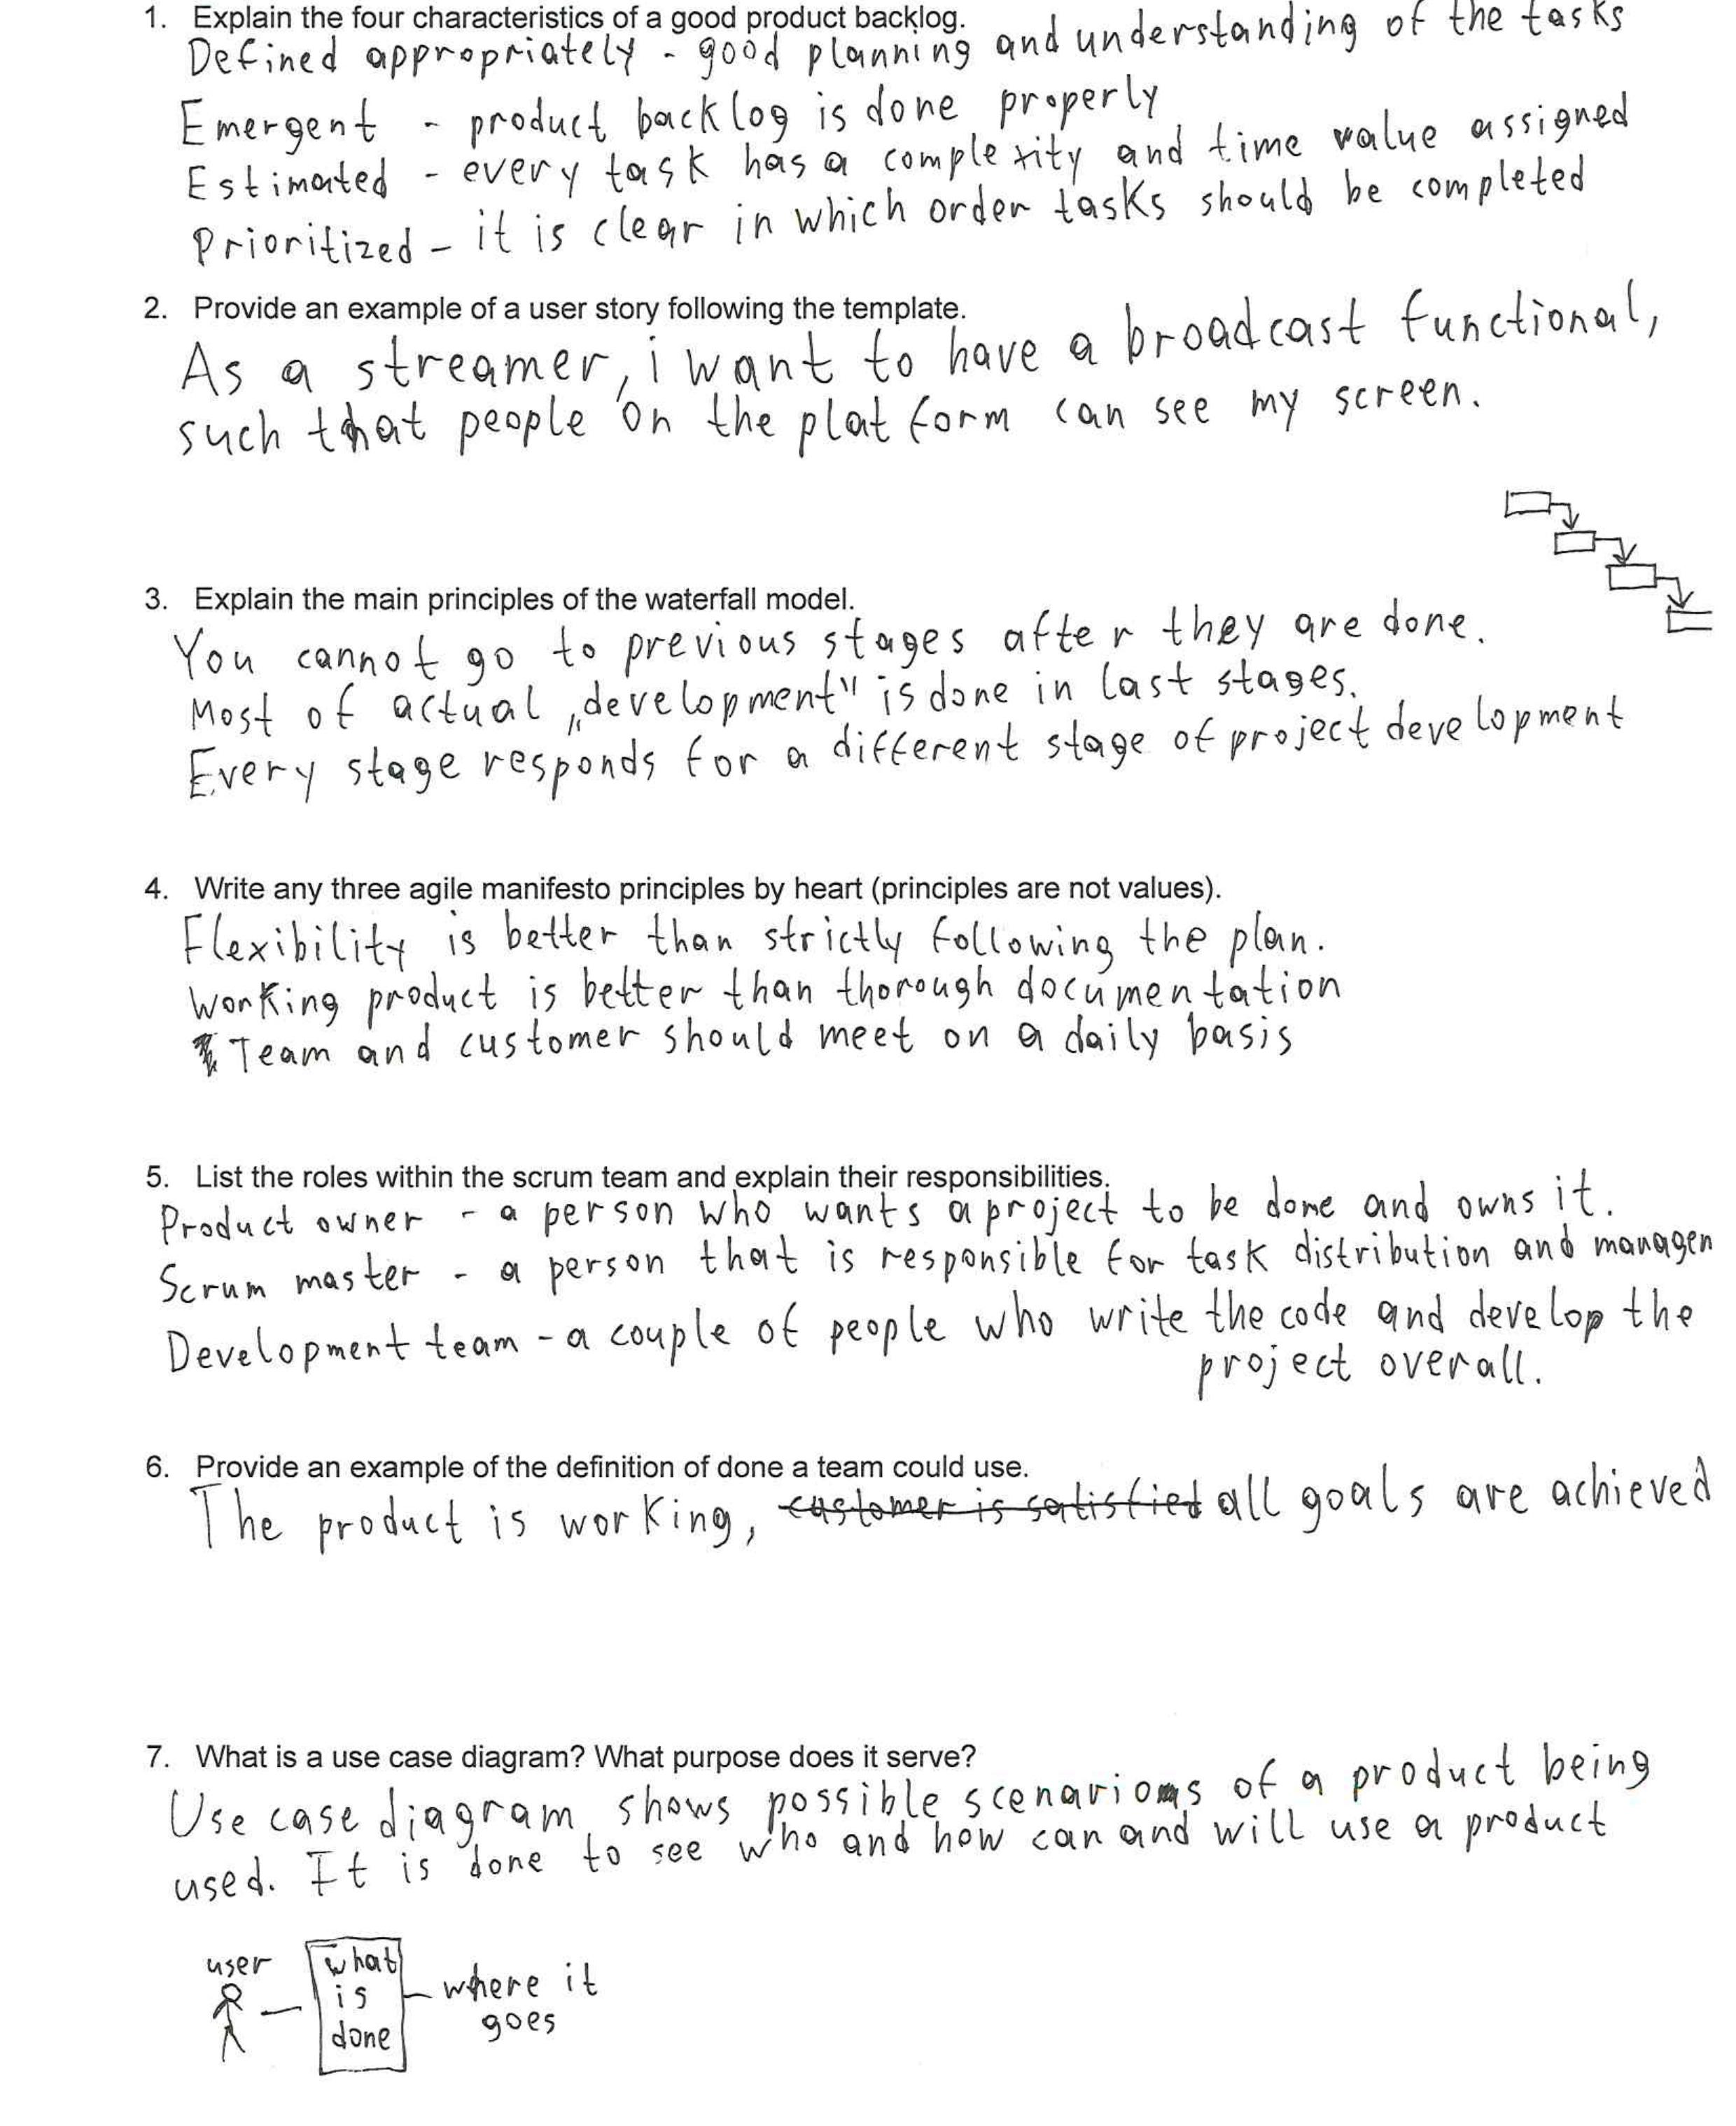 1. Explain the four characteristics of a good product backlog.
Defined appropriately - good planning and understanding of the tasks
Emergent - product backlog is done properly
Estimated - every task has a complexity and time value assigned
Prioritized - it is clear in which order tasks should be completed
2. Provide an example of a user story following the template.
As a streamer, i want to have a broadcast functional,
such that people on the platform can see my screen.
3. Explain the main principles of the waterfall model.
You cannot go to previous stages after they are done.
Most of actual „development" is done in last stages.
Every stage responds for a different stage of project development
4. Write any three agile manifesto principles by heart (principles are not values).
Flexibility is better than strictly following the plan.
Working product is better than thorough documentation
Team and customer should meet on a daily basis
5. List the roles within the scrum team and explain their responsibilities.
Product owner - a person who wants a project to be done and owns it.
Scrum master - a person that is responsible for task distribution and managen
Development team - a couple of people who write the code and develop the
project overall.
6. Provide an example of the definition of done a team could use.
The product is working, customer is satisfied all goals are achieved
7. What is a use case diagram? What purpose does it serve?
Use case diagram shows possible scenarios of a product being
used. It is done to see who and how can and will use a product
user
what
is
done
where it
goes